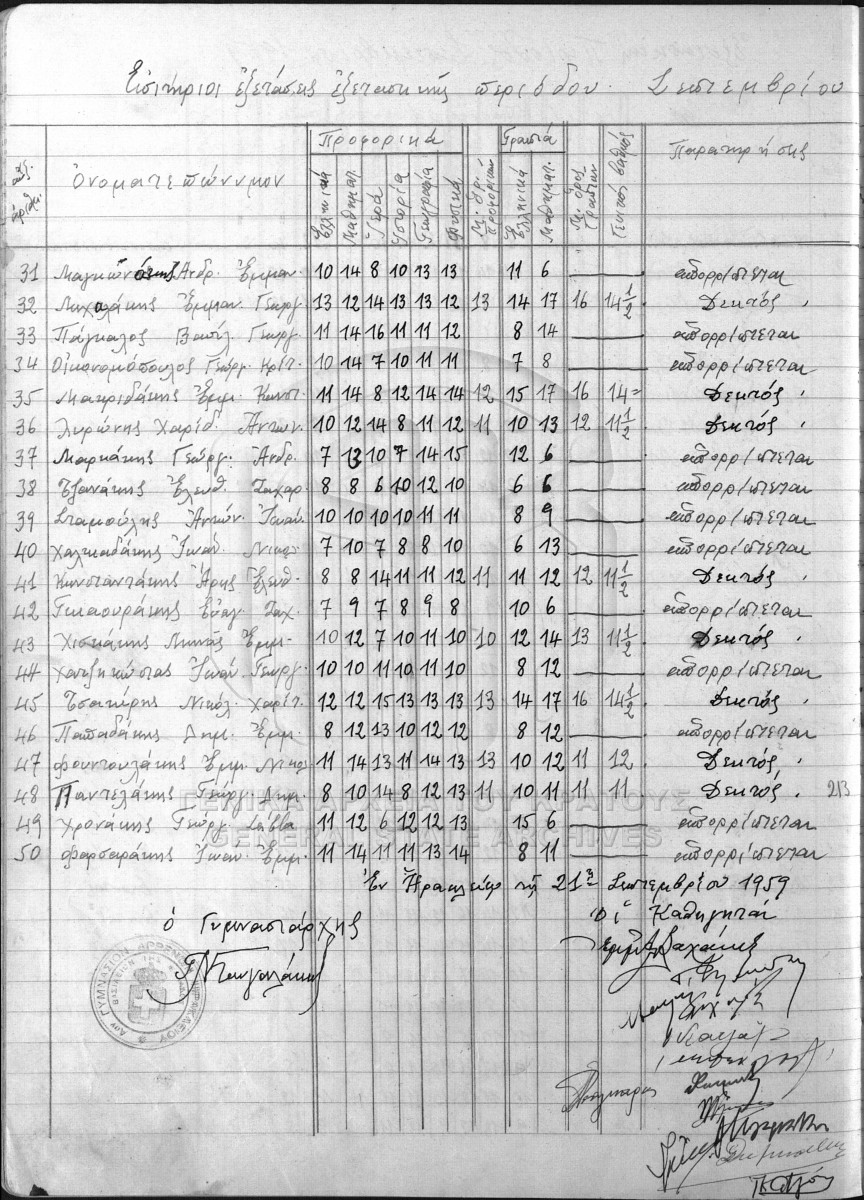 Εἰσιτήριοι ἐξετάσεις ἐξεταστικῆς περιόδου Σεπτεμβρίου
αὔξ. ἀριθμ. Ὀνοματεπώνυμον Προφορικά Μ. ὅρ. προφορικῶν Γραπτά Μ. ὅρος Γραπτῶν Γενικός βαθμός Παρατηρήσεις
Ἑλληνικά Μαθηματ. Ἱερά Ἱστορία Γεωγραφία Φυσικά Ἑλληνικά Μαθηματ.
31 Ἀνδρ. Ἐμμαν. 10 14 8 10 13 13 11 6 ἀπορρίπτεται
32 Μιχαλάκης Ἐμμαν. Γεωργ. 13 12 14 13 13 12 13 14 17 16 14 1/2 Δεκτός
33 Πάγκαλος Βασίλ. Γεωργ. 11 14 16 11 11 12 8 14 ἀπορρίπτεται
34 Οἰκονομόπουλος Γεώργ. Κρίτ. 10 14 7 10 11 11 7 8 ἀπορρίπτεται
35 Μακριδάκης Ἐμμ. Κωνστ. 11 14 8 12 14 14 12 15 17 16 14= Δεκτός
36 Λυρώνης Χαρίδ. Ἀντων. 10 12 14 8 11 12 11 10 13 12 11 1/2 Δεκτός
37 Μαρκάκης Γεώργ. Ἀνδρ. 7 13 10 7 14 15 12 6 ἀπορρίπτεται
38 Τζανάκης Ἐλευθ. Ζαχαρ. 8 8 6 10 12 10 6 6 ἀπορρίπτεται
39 Σταμούλης Ἀντών. Ἰωάν. 10 10 10 10 11 11 8 9 ἀπορρίπτεται
40 Χαλκιαδάκης Ἰωάν. Νικολ. 7 10 7 8 8 10 6 13 ἀπορρίπτεται
41 Κωνσταντάκης Ἄρης Ἐλευθ. 8 8 14 11 11 12 11 11 12 12 11 1/2 Δεκτός
42 Γκαουράκης Εὐάγ. Ζαχ. 7 9 7 8 9 8 10 6 ἀπορρίπτεται
43 Χισκάκης Μηνᾶς Ἐμμ. 10 12 7 10 11 10 10 12 14 13 11 1/2 Δεκτός
44 Χατζηκώστας Ἰωάν. Γεωργ. 10 10 11 10 11 10 8 12 ἀπορρίπτεται
45 Τσακίρης Νικόλ. Χαρίτ. 12 12 15 13 13 13 13 14 17 16 14 1/2 Δεκτός
46 Παπαδάκης Δημ. Ἐμμ. 8 12 13 10 12 12 8 12 ἀπορρίπτεται
47 Φουντουλάκης Ἐμμ. Νικολ. 11 14 13 11 14 13 13 10 12 11 12 Δεκτός
48 Παντελάκης Γεώργ. Δημ. 8 10 14 8 12 13 11 10 11 11 11 Δεκτός 213
49 Χρονάκης Γεώργ. Σάββα 11 12 6 12 12 13 15 6 ἀπορρίπτεται
50 Φαρσαράκης Ἰωάν. Ἐμμ. 11 14 11 11 13 14 8 11 ἀπορρίπτεται
ΓΕΝΙΚΑ ΑΡΧΕΙΑ ΤΟΥ ΚΡΑΤΟΥΣ
GENERAL STATE ARCHIVES
Ἐν Ἡρακλείῳ τῇ 21ῃ Σεπτεμβρίου 1959
ὁ Γυμνασιάρχης οἱ Καθηγηταί